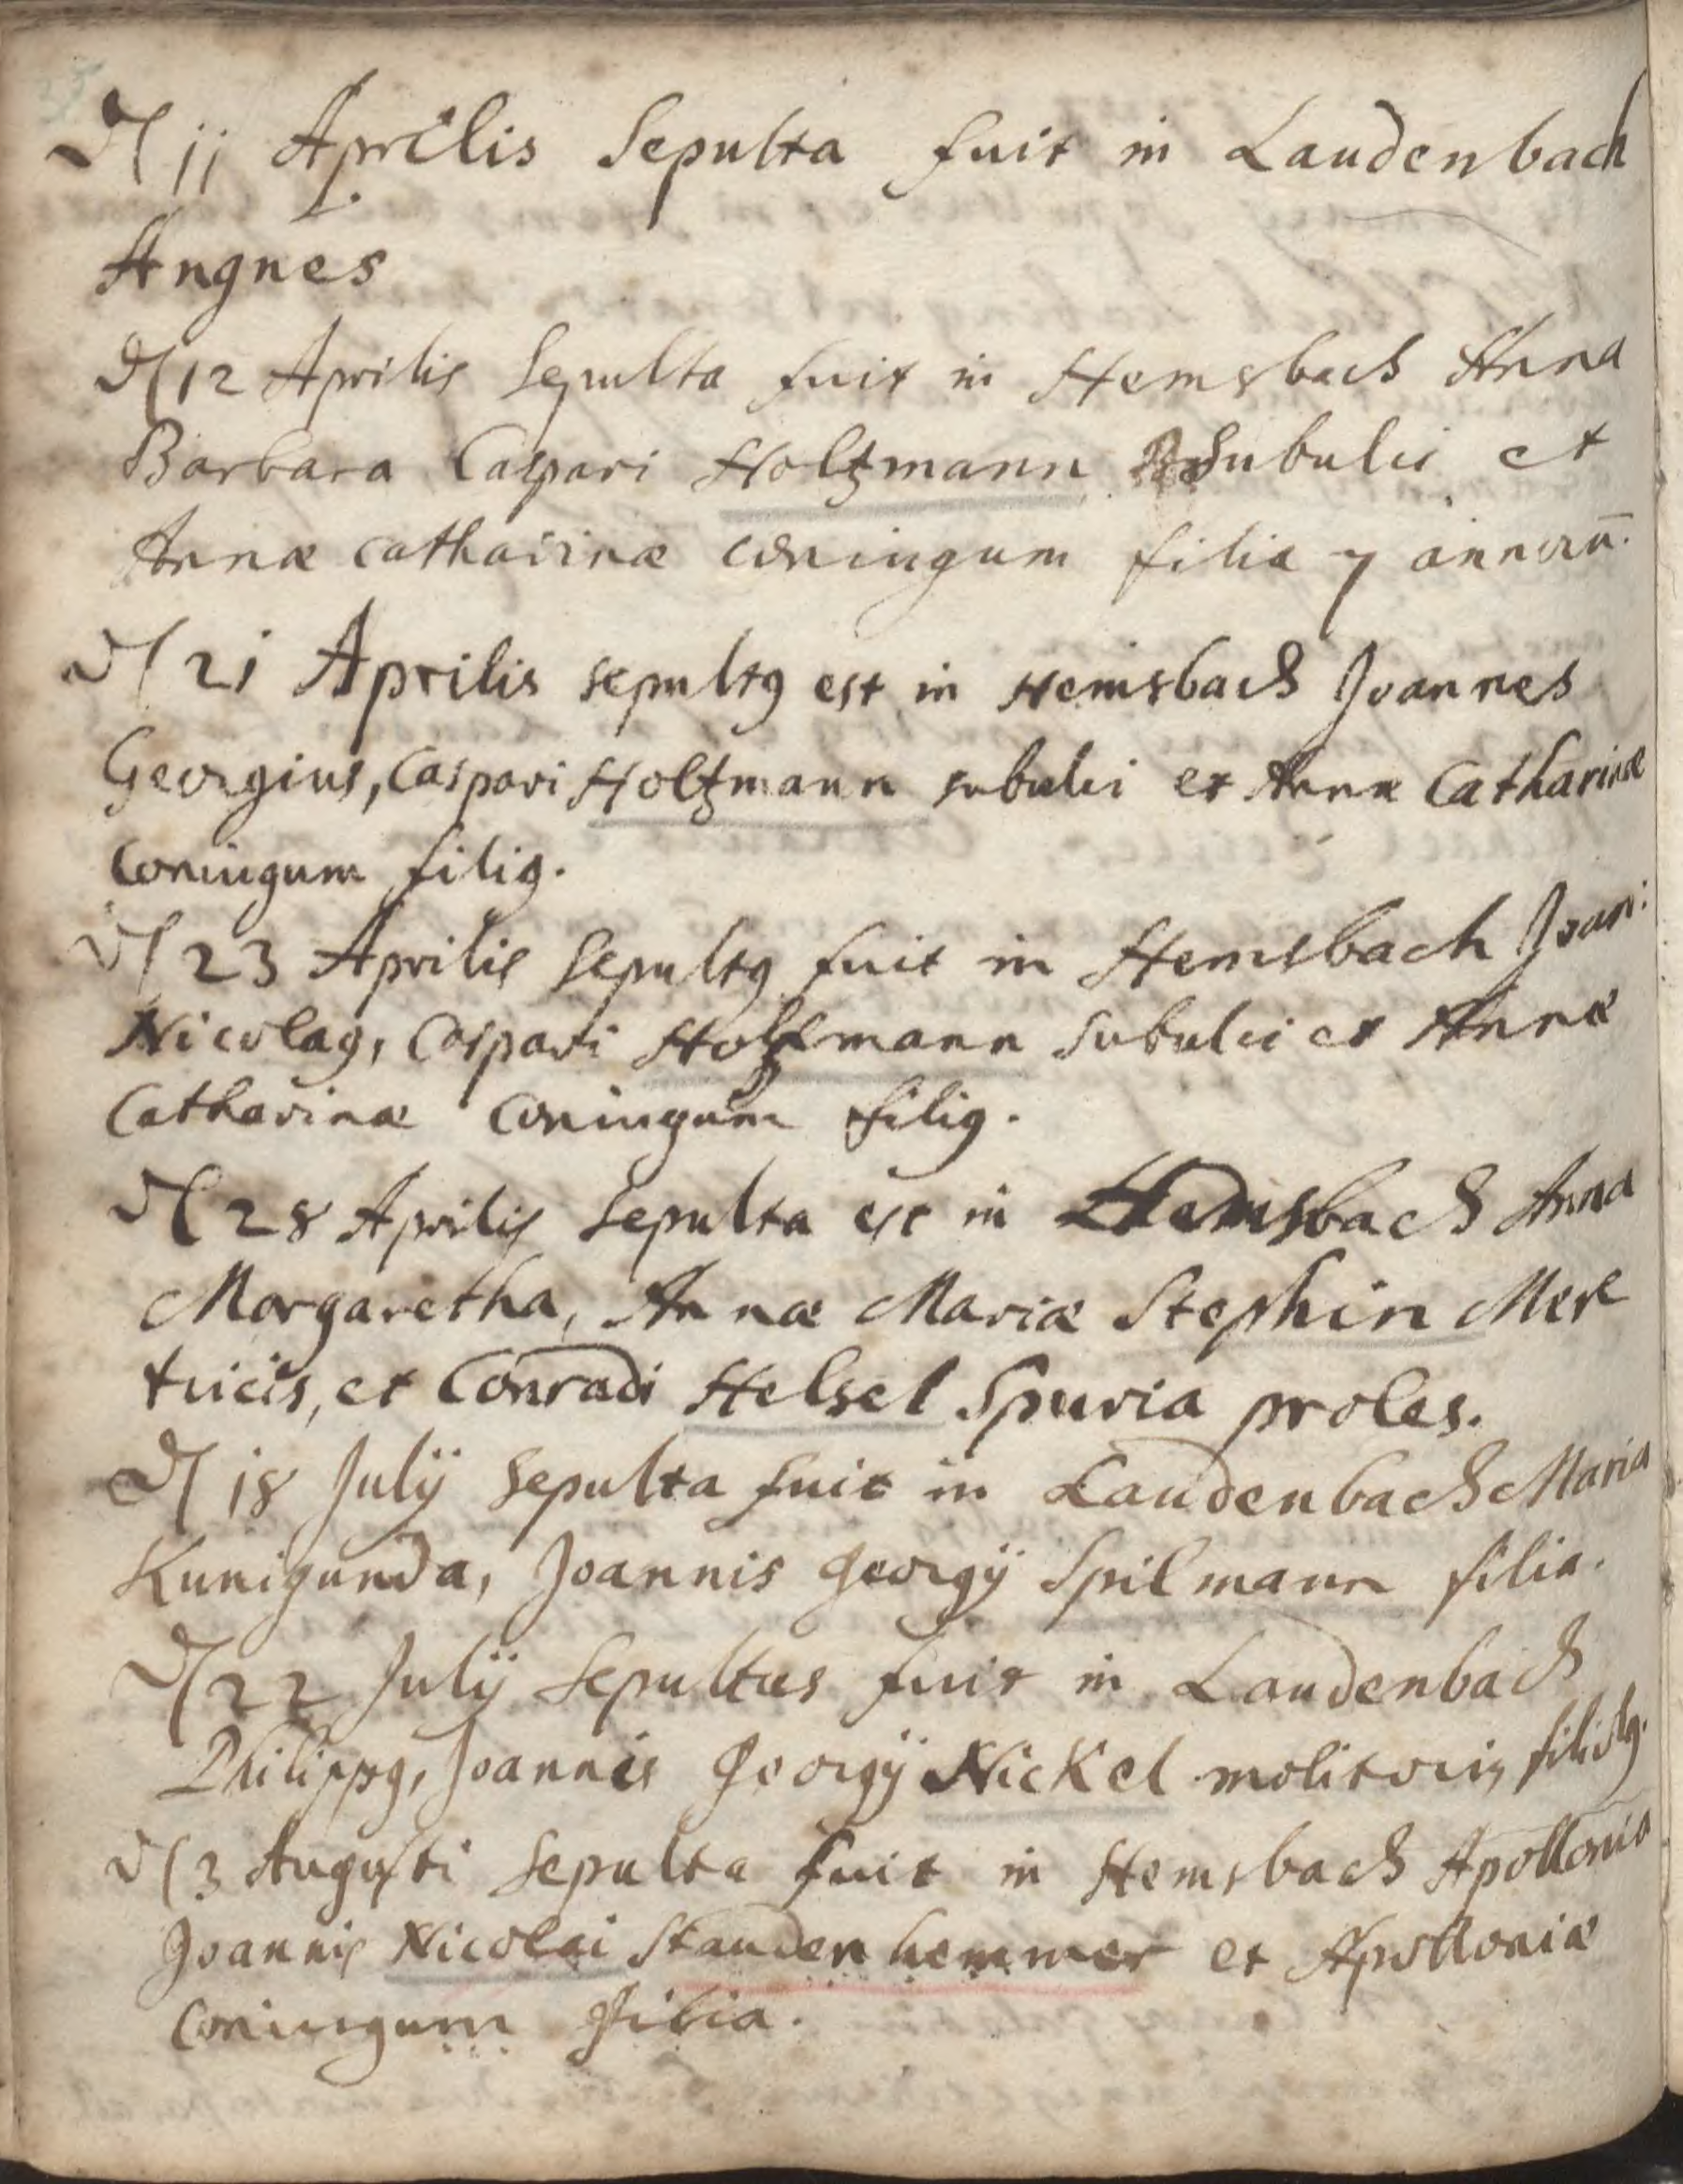 D 11 Aprilis Sepulta fuit in Laudenbach
Angnes
D 12 Aprilis Sepulta fuit in Hemsbach Anna
Barbara Caspari Holtzmann Subulci et
Annæ catharinæ coniugum filia 7 annorū.
D 21 Aprilis sepultꝯ est in Hemsbach Joannes
Georgius, Caspari Holtzmann subulci et Annæ Catharinæ
Coniugum filiꝯ.
D 23 Aprilis Sepultꝯ fuit in Hemsbach Joan:
Nicolaꝯ, Caspari Holtzmann Subulci et Annæ
Catharinæ Coniugum filiꝯ.
D 28 Aprilis Sepulta est in Hemsbach Anna
Margaretha, Annæ Mariæ Stephin Mere
tricis, et Conradi Helsel Spuria proles.
D 18 Julÿ Sepulta fuit in Laudenbach Maria
Kunigunda, Joannis Georgÿ Spilmann filia.
D 22 Julÿ Sepultus fuit in Laudenbach
Philippꝯ, Joannis Georgÿ Nickel molitoris filiolꝯ.
D 3 Augusti Sepulta fuit in Hemsbach Apollonia
Joannis Nicolai Staudenhemmer et Apolloniæ
Coniugum filia.